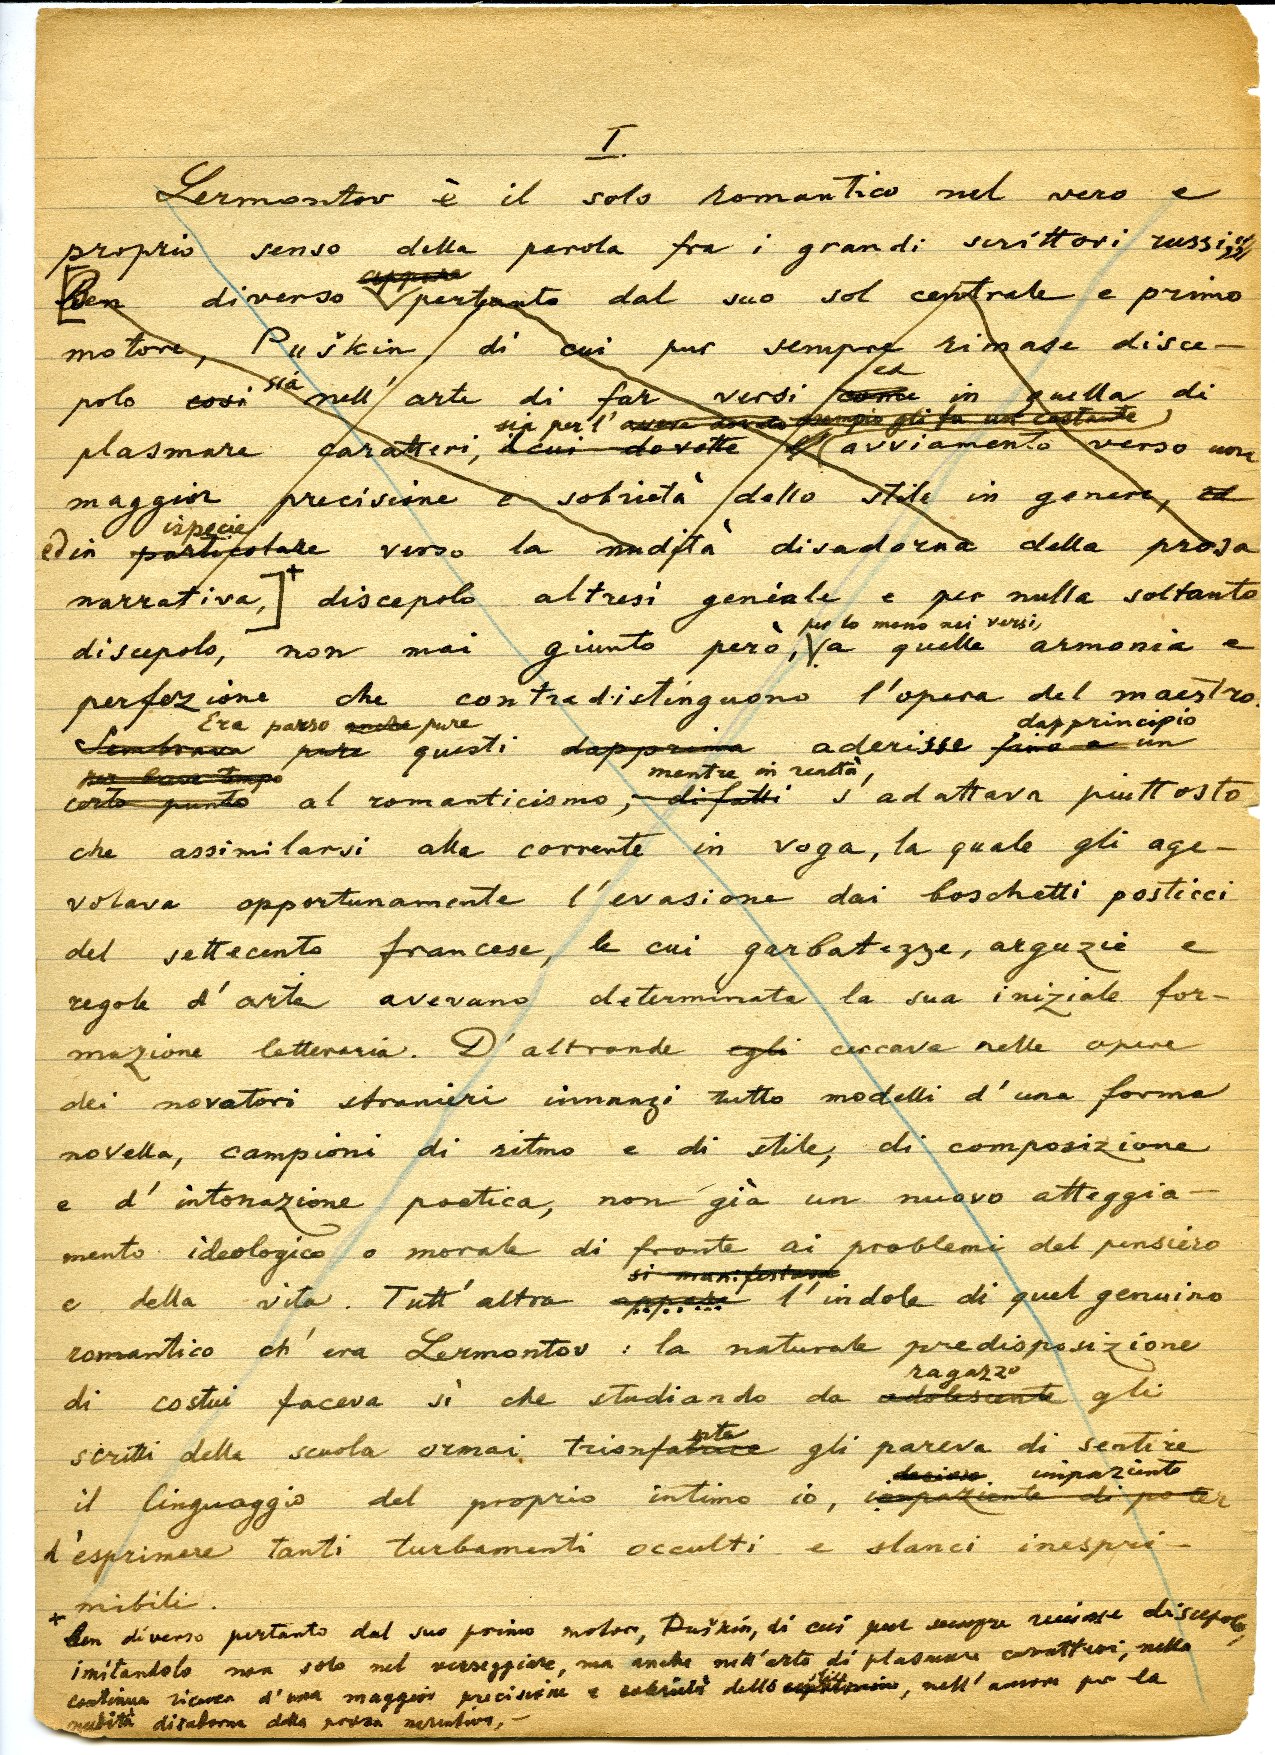 I.
Lermontov è il solo romantico nel vero e
proprio senso della parola fra i grandi scrittori russi
appare
Ben diverso pertanto dal suo sol centrale e primo
motore, Puškin di cui pur sempre rimase disce-
sia ed
polo così nell'arte di far versi come in quella di
sia per l'aveva dovuto esempio gli fu un costante
plasmare caratteri, a cui dovette l'avviamento verso una
maggior precisione e sobrietà dello stile in genere, ed
ispecie
ed in particolare verso la nudità disadorna della prosa
narrativa,]+ discepolo altresì geniale e per nulla soltanto
per lo meno nei versi,
discepolo, non mai giunto però, a quelle armonia e
perfezione che contradistinguono l'opera del maestro.
Era parso anche pure dapprincipio
Sembrava pure questi dapprima aderisse fino a un
per breve tempo mentre in realtà,
certo punto al romanticismo, difatti s'adattava piuttosto
che assimilarsi alla corrente in voga, la quale gli age-
volava opportunamente l'evasione dai boschetti posticci
del settecento francese, le cui garbatezze, arguzie e
regole d'arte avevano determinata la sua iniziale for-
mazione letteraria. D'altronde egli cercava nelle opere
dei novatori stranieri innanzi tutto modelli d'una forma
novella, campioni di ritmo e di stile, di composizione
e d'intonazione poetica, non già un nuovo atteggia-
mento ideologico o morale di fronte ai problemi del pensiero
si manifestava
e della vita. Tutt'altra appare l'indole di quel genuino
romantico ch'era Lermontov: la naturale predisposizione
ragazzo
di costui faceva sì che studiando da adolescente gli
nte
scritti della scuola ormai trionfatrice gli pareva di sentire
impaziente
il linguaggio del proprio intimo io, impaziente di poter
d'esprimere tanti turbamenti occulti e slanci inespri-
mibili.
+ Ben diverso pertanto dal suo primo motore, Puškin, di cui pur sempre rimase discepolo,
imitandolo non solo nel verseggiare, ma anche nell'arte di plasmare caratteri, nella
stile
continua ricerca d'una maggior precisione e sobrietà dello, nell'amore per la
nudità disadorna della prosa narrativa,-